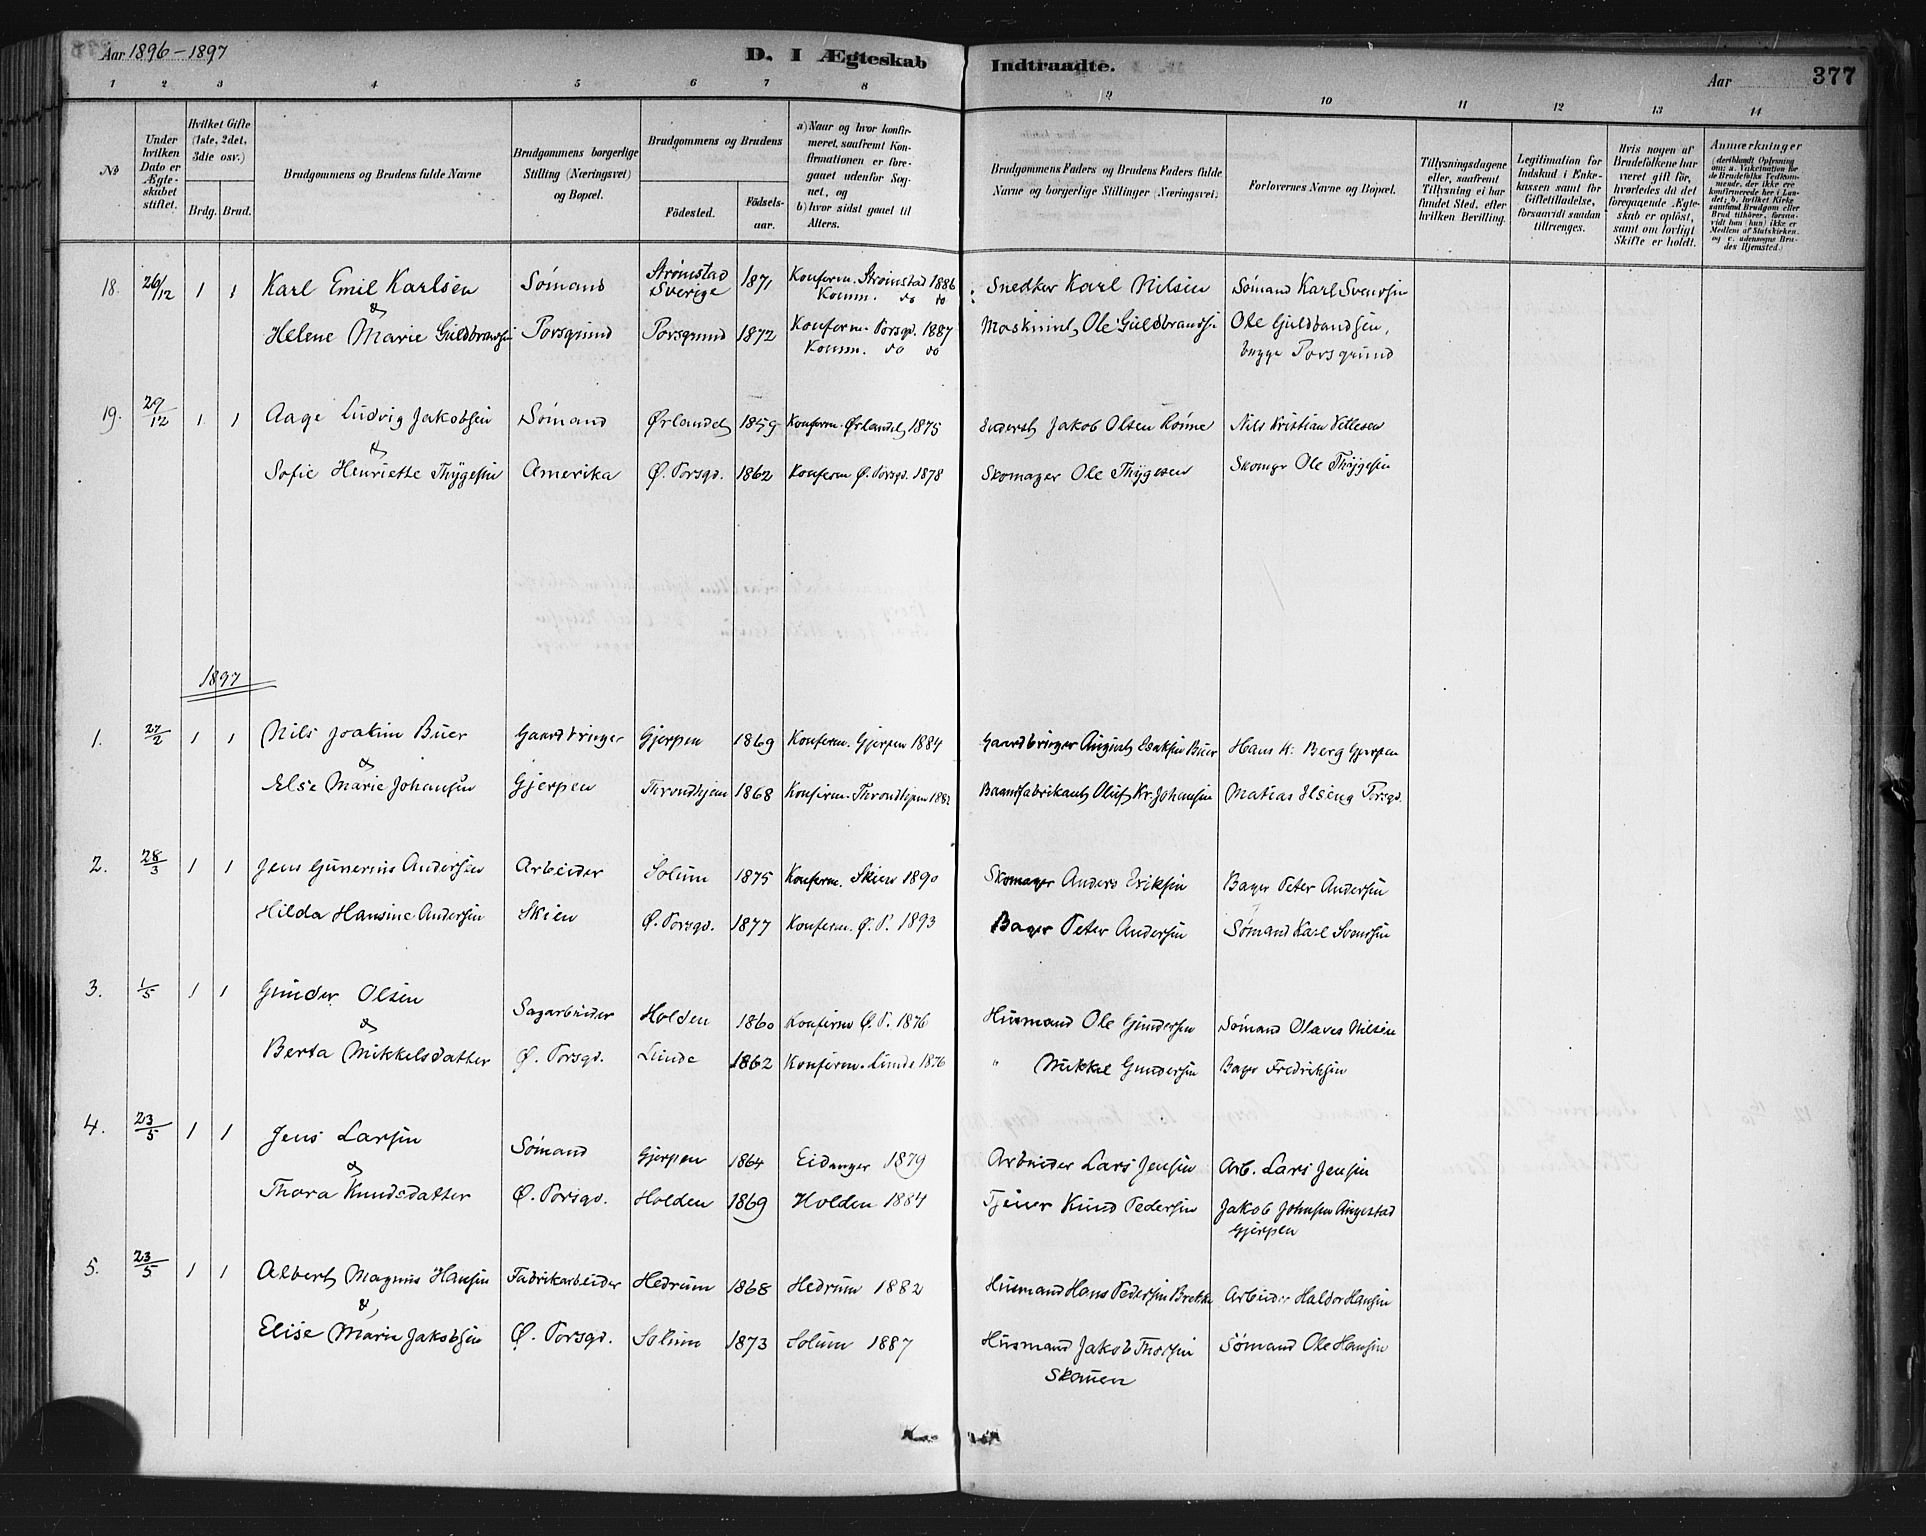 Aar 1896-1897
D. I Ægteskab Indtraadte.
Aar
377
1 2 3 4 5 6 7 8 9 10 11 12 13 14
No
Under hvilken Dato er Ægteskabet stiftet.
Hvilket Gifte (1ste, 2det, 3die osv.)
Brdg. Brud.
Brudgommens og Brudens fulde Navne
Brudgommens borgerlige Stilling (Næringsvei) og Bopæl.
Brudgommens og Brudens
Födested.
Födselsaar.
a) Naar og hvor konfirmeret, saafremt Konfirmationen er foregaaet udenfor Sognet, og
b) hvor sidst gaaet til Alters.
Brudgommens Faders og Brudens Faders fulde Navne og borgerlige Stillinger (Næringsvei).
Forlovernes Navne og Bopæl.
Tillysningsdagene eller, saafremt Tillysning ei har fundet Sted, efter hvilken Bevilling.
Legitimation for Indskud i Enkekassen samt for Giftetilladelse, forsaavidt saadan tiltrænges.
Hvis nogen af Brudefolkene har været gift för, hvorledes da det foregaaende Ægteskab er oplöst, samt om lovligt Skifte er holdt.
Anmærkninger
18. 26/12 1 1 Karl Emil Karlsen Sømand Strømstad Sverige 1871 Konferm. Strømstad 1886 Komm. do do Snedker Karl Nilsen Sømand Karl Svendsen
&
Helene Marie Guldbrandsen Porsgrund Porsgrund 1872 Konferm. Porsgd. 1887 Komm. do do Maskinist Ole Guldbrandsen Ole Guldbandsen, begge Porsgrund
19. 29/12 1 1 Aage Ludvig Jakobsen Sømand Ørlandet 1859 Konferm. Ørlandet 1875 Jakob Olsen Rønne Nils Kristian
&
Sofie Henriette Thygesen Amerika Ø. Porsgd. 1862 Konferm Ø. Porsgd. 1878 Skomager Ole Thygesen Skomgr Ole Thygesen
1897
1. 27/2 1 1 Nils Joakim Buer Gaardbruger Gjerpen 1869 Konferm. Gjerpen 1884 Gaardbruger August Isaksen Buer Hans K. Berg Gjerpen
&
Else Marie Johansen Gjerpen Throndhjem 1868 Konfirm. Throndhjem 1882 Oluf Kr. Johansen Matias Porsgd.
2. 28/3 1 1 Jens Gunerius Andersen Arbeider Solum 1875 Konferm. Skien 1890 Skomager Anders Eriksen Bager Peter Andersen
Hilda Hansine Andersen Skien Ø. Porsgd. 1877 Konferm. Ø. P. 1893 Bager Peter Andersen Sømand Karl Svensen
3. 1/5 1 1 Gunder Olsen Sagarbeider Holden 1860 Konfirm Ø. P. 1876 Husmand Ole Gundersen Sømand Olaves Nilsen
&
Berta Mikkelsdatter Ø. Porsgd. Lunde 1862 Konfirm. Lunde 1876 " Mikkel Gundersen Bager Fredriksen
4. 23/5 1 1 Jens Larsen Sømand Gjerpen 1864 Eidanger 1879 Arbeider Lars Jensen Arb. Lars Jensen
&
Thora Knudsdatter Ø. Porsgd. Holden 1869 Holden 1884 Tjener Knud Pedersen Jakob Johnsen Angestad Gjerpen
5. 23/5 1 1 Albert Magnus Hansen Fabrikarbeider Hedrum 1868 Hedrum 1882 Husmand Hans Pedersen Brekke Arbeider Haldor Hansen
&
Elise Marie Jakobsen Ø. Porsgd. Solum 1873 Solum 1887 Husmand Jakob Thorsen Skauen Sømand Ole Hansen